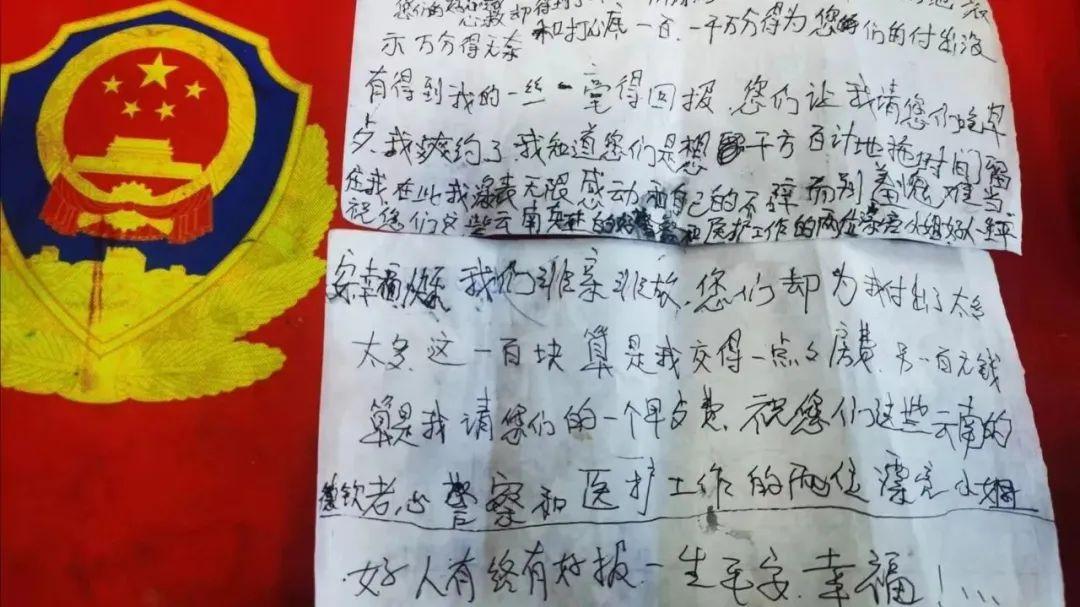 您们的 却得到了
示万分得无奈 和打心底一百、一千万分得为您们的付出没
有得到我的一丝一毫得回报,您们让我请您们吃早
点,我爽约了,我知道您们是想千方百计地拖时间留
住我,在此我深表无限感动和自己的不辞而别羞愧难当
祝您们这些云南 的 和医护工作的两位漂亮小姐好人一生平
安幸福快乐,我们非亲非故,您们却为我付出了太多
太多,这一百块算是我交得一点点房费,另一百元钱
算是我请您们的一个早点费,祝您们这些云南的
者,心警察和医护工作的两位漂亮小姐
好人有终有好报,一生平安,幸福!…